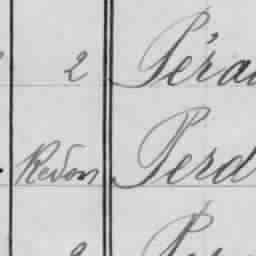 2 Péra
Redon Perd
2